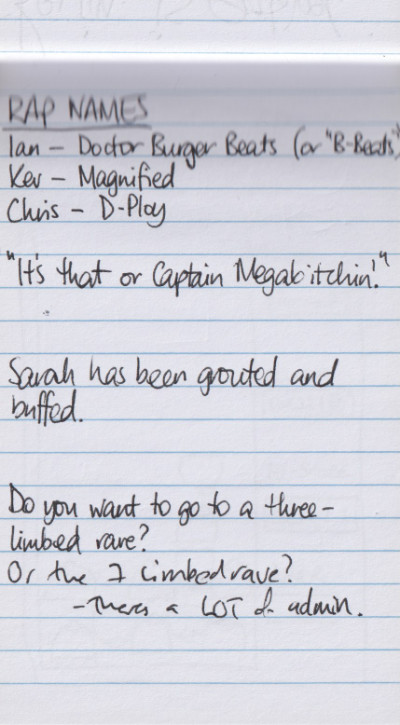 RAP NAMES
Ian – Doctor Burger Beats (or "B-Beats")
Kev – Magnified
Chris – D-Ploy
"It's that or Captain Megabitchin'."
Sarah has been grouted and
buffed.
Do you want to go to a three-
limbed rave?
Or the 7 limbed rave?
- Theres a LOT of admin.